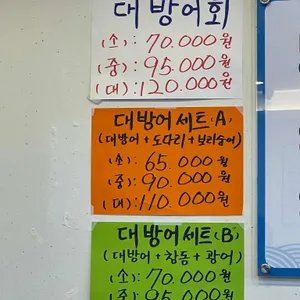 대방어회
(소): 70.000원
(중): 95.000원
(대): 120.000원
대방어세트(A)
(대방어+도다리+보리숭어)
(소): 65.000원
(중): 90.000원
(대): 110.000원
대방어세트(B)
(대방어+참돔+광어)
(소): 70.000원
(중): 95.000원